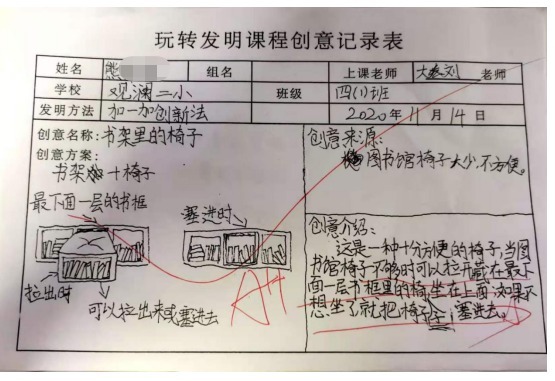 玩转发明课程创意记录表
姓名 熊 组名 上课老师 大 刘 老师
学校 观澜二小 班级 四(1)班
发明方法 加一加创新法 2020年11月14日
创意名称:书架里的椅子
创意方案:
书架+椅子
最下面一层的书框
塞进时
拉出时
可以拉出来或塞进去
创意来源:
图书馆椅子太少,不方便。
创意介绍:
这是一种十分方便的椅子,当图
书馆椅子不够时可以拉开藏在最下
面一层书框里的椅,坐在上面,如果不
想坐了就把椅子 塞进去。
A+